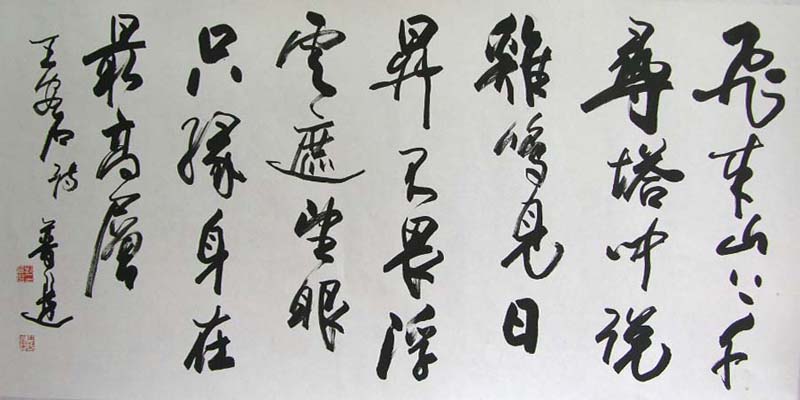 飛来山上千
尋塔闻说
雞鸣見日
昇不畏浮
雲遮望眼
只緣身在
最高層
王安石詩